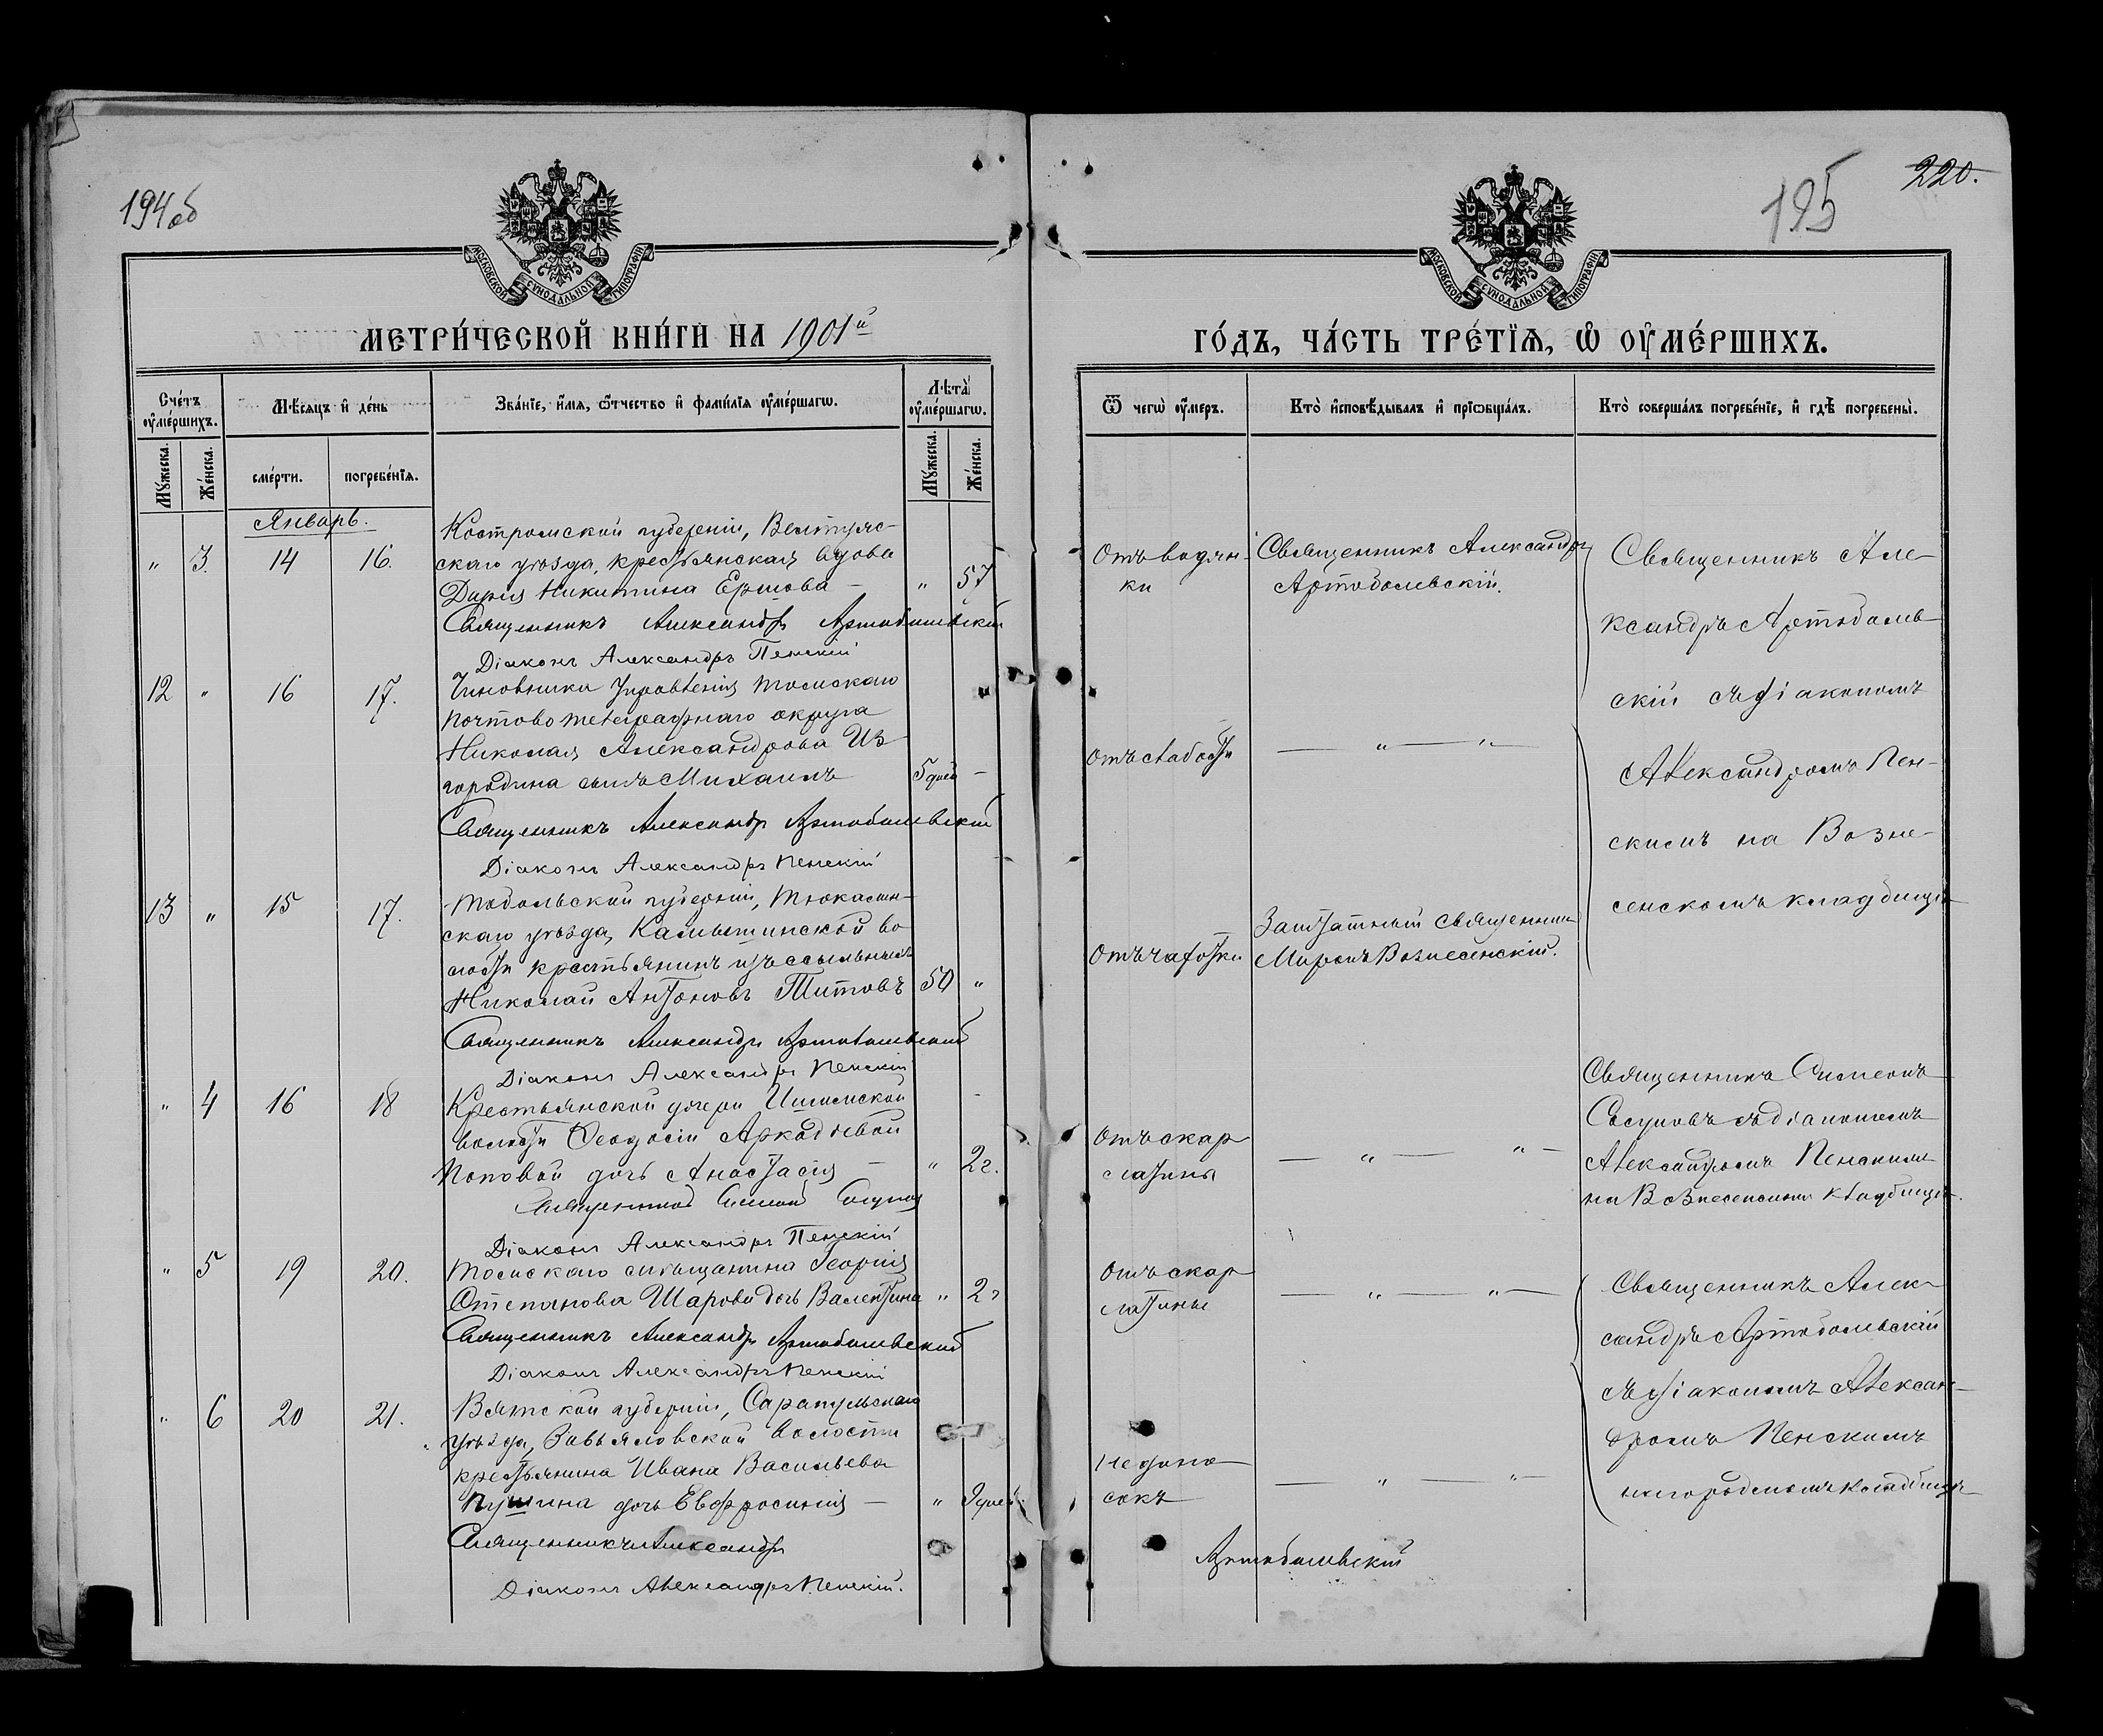 194об
МОСКОВСКОЙ СУНОДАЛЬНОЙ ТИПОГРАФІИ
МЕТРИ́ЧЕСКОЙ КНИ́ГИ НА 1901й
Сче́тъ ᲂу҆ме́ршихъ.
Мѣ́сяцъ и҆ де́нь
Зва́нїе, и҆́мѧ, ѻ҆́тчество и҆ фами́лїѧ ᲂу҆ме́ршагѡ.
Лѣта̀ ᲂу҆ме́ршагѡ.
Мꙋ́жеска.
Же́нска.
сме́рти.
погребе́нїѧ.
Мꙋ́жеска.
Же́нска.
Январь.
Костромской губерніи, Ветлуж-
" 3. 14 16. скаго уѣзда, крестьянская вдова
Дарія Никитина Ершова — " 57
Священникъ Александръ Артоболевскій
Діаконъ Александръ Пенскій
12 " 16 17. Чиновника Управленія Томскаго
почтово телеграфнаго округа
Николая Александрова Из-
городина сынъ Михаилъ 5 дней —
Священникъ Александръ Артоболевскій
Діаконъ Александръ Пенскій
13 " 15 17. Тобольской губерніи, Тюкалин-
скаго уѣзда, Камышинской во-
лости крестьянинъ изъ ссыльныхъ
Николай Антоновъ Титовъ 50 "
Священникъ Александръ Артоболевскій
Діаконъ Александръ Пенскій
" 4 16 18 Крестьянской дочери Ишимской
волости Ѳеодосіи Аркадьевой
Поповой дочь Анастасія — " 2 г.
Священникъ Симеонъ Сосуновъ
Діаконъ Александръ Пенскій
" 5 19 20. Томскаго мѣщанина Георгія
Степанова Шарова дочь Валентина " 2 г
Священникъ Александръ Артоболевскій
Діаконъ Александръ Пенскій
" 6 20 21. Вятской губерніи, Сарапульскаго
уѣзда, Завьяловской волости
крестьянина Ивана Васильева
Пушина дочь Евфросинія — " 9 дней
Священникъ Александръ
Діаконъ Александръ Пенскій.
195
220.
МОСКОВСКОЙ СУНОДАЛЬНОЙ ТИПОГРАФІИ
ГО́ДЪ, ЧА́СТЬ ТРЕ́ТЇѦ, Ѡ҆ ОУ҆МЕ́РШИХЪ.
Ѿ чегѡ̀ ᲂу҆́меръ.
Кто̀ и҆сповѣ́дывалъ и҆ прїѡбща́лъ.
Кто̀ соверша́лъ погребе́нїе, и҆ гдѣ̀ погребены̀.
Отъ водян-
ки
Священникъ Александръ
Артоболевскій.
Священникъ Але-
ксандръ Артоболев-
скій съ діакономъ
Александромъ Пен-
скимъ на Возне-
сенскомъ кладбищѣ
Отъ слабости
— " — " —
Отъ чахотки
Заштатный священникъ
Миронъ Вознесенскій.
Отъ скар
латины
— " — " —
Священникъ Симеонъ
Сосуновъ съ діакономъ
Александромъ Пенскимъ
на Вознесенскомъ кладбищѣ.
Отъ скар
латины
— " — " —
Священникъ Алек-
сандръ Артоболевскій
съ діакономъ Алексан-
дромъ Пенскимъ
на городскомъ кладбищѣ
Недоно
сокъ
— " — " —
Артоболевскій